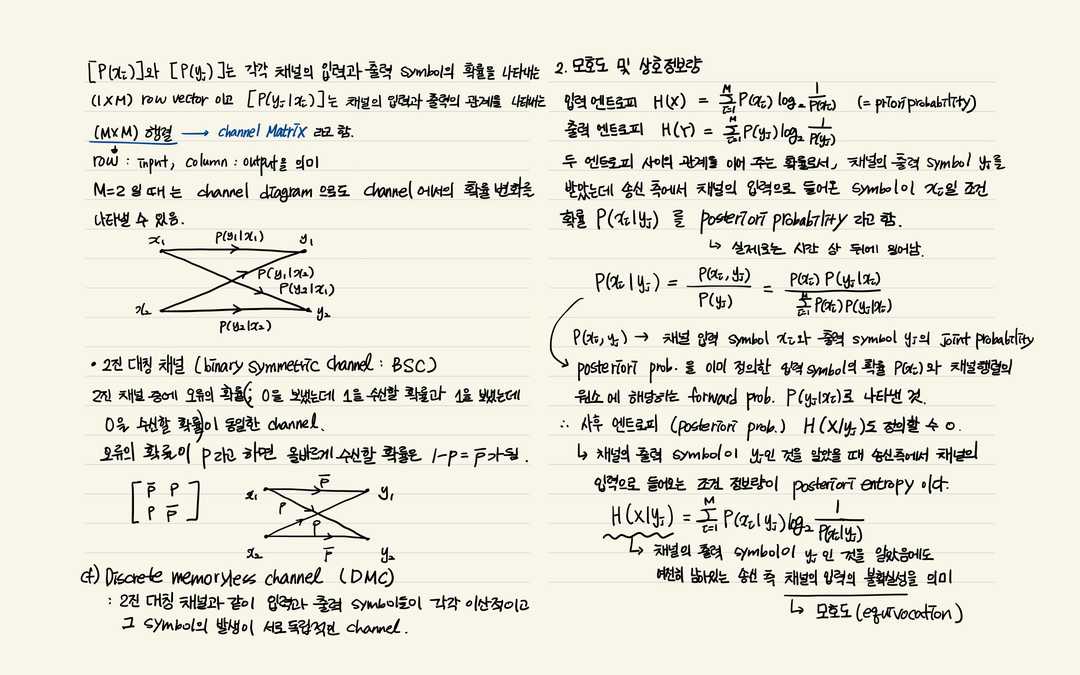 [P(xᵢ)]와 [P(yⱼ)]는 각각 채널의 입력과 출력 symbol의 확률을 나타내는
(1×M) row vector 이고 [P(yⱼ|xᵢ)]는 채널의 입력과 출력의 관계를 나타내는
(M×M) 행렬 → channel Matrix 라고 함.
row : input, column : output을 의미
M=2 일 때는 channel diagram으로도 channel에서의 확률 변화를
나타낼 수 있음.
x₁ P(y₁|x₁) y₁
P(y₁|x₂)
P(y₂|x₁)
x₂ P(y₂|x₂) y₂
• 2진 대칭 채널 (binary symmetric channel : BSC)
2진 채널 중에 오류의 확률(; 0을 보냈는데 1을 수신할 확률과 1을 보냈는데
0을 수신할 확률)이 동일한 channel.
오류의 확률이 p라고 하면 올바르게 수신할 확률은 1-p = p̅가 됨.
[p̅ p
p p̅]
x₁ p̅ y₁
p
p
x₂ p̅ y₂
cf) Discrete memoryless channel (DMC)
: 2진 대칭 채널과 같이 입력과 출력 symbol들이 각각 이산적이고
그 symbol의 발생이 서로 독립적인 channel.
2. 모호도 및 상호정보량
입력 엔트로피 H(X) = Σᵢ₌₁ᴹ P(xᵢ) log₂ 1/P(xᵢ) (= priori probability)
출력 엔트로피 H(Y) = Σⱼ₌₁ᴹ P(yⱼ) log₂ 1/P(yⱼ)
두 엔트로피 사이의 관계를 이어 주는 확률로서, 채널의 출력 symbol yⱼ를
받았는데 송신 측에서 채널의 입력으로 들어온 symbol이 xᵢ일 조건
확률 P(xᵢ|yⱼ) 를 posteriori probability 라고 함.
↳ 실제로는 시간 상 뒤에 일어남.
P(xᵢ|yⱼ) = P(xᵢ, yⱼ)/P(yⱼ) = P(xᵢ) P(yⱼ|xᵢ)/Σᵢ₌₁ᴹ P(xᵢ) P(yⱼ|xᵢ)
P(xᵢ, yⱼ) → 채널 입력 symbol xᵢ와 출력 symbol yⱼ의 joint probability
posteriori prob. 를 이미 정의한 입력 symbol의 확률 P(xᵢ)와 채널행렬의
원소에 해당하는 forward prob. P(yⱼ|xᵢ)로 나타낸 것.
∴ 사후 엔트로피 (posteriori prob.) H(X|yⱼ)도 정의할 수 o.
↳ 채널의 출력 symbol이 yⱼ인 것을 알았을 때 송신측에서 채널의
입력으로 들어오는 조건 정보량이 posteriori entropy 이다.
H(X|yⱼ) = Σᵢ₌₁ᴹ P(xᵢ|yⱼ) log₂ 1/P(xᵢ|yⱼ)
↳ 채널의 출력 symbol이 yⱼ인 것을 알았음에도
여전히 남아있는 송신 측 채널의 입력의 불확실성을 의미
↳ 모호도 (equivocation)